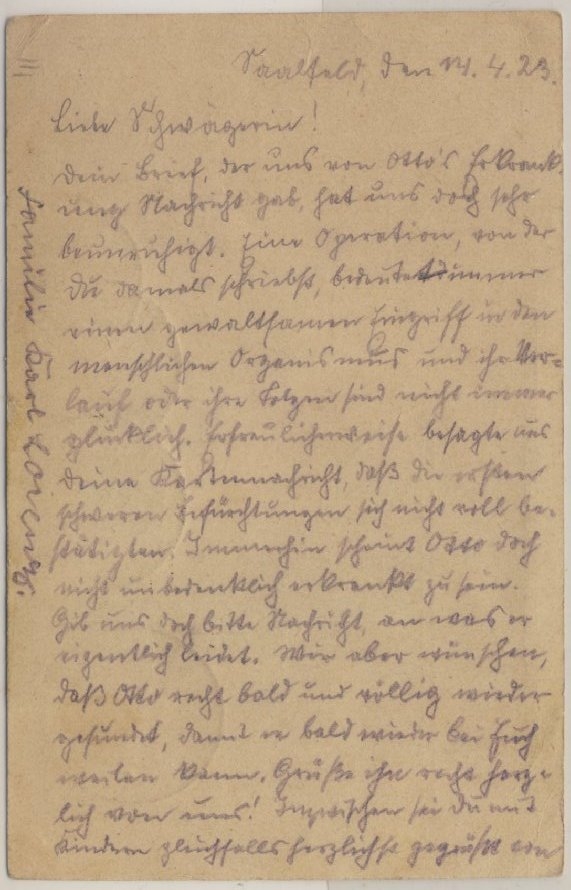 Saalfeld, den 14. 4. 23.
Liebe Schwägerin!
Dein Brief, der uns von Otto's Erkrank-
ung Nachricht gab, hat uns doch sehr
beunruhigt. Eine Operation, von der
Du damals schriebst, bedeutet immer
einen gewaltsamen Eingriff in den
menschlichen Organismus und ihr Ver-
lauf oder ihre Folgen sind nicht immer
glücklich. Erfreulicherweise besagte uns
deine Kartennachricht, daß die ersten
schweren Befürchtungen sich nicht voll be-
stätigten. Immerhin scheint Otto doch
nicht unbedenklich erkrankt zu sein.
Gib uns doch bitte Nachricht, an was er
eigentlich leidet. Wir aber wünschen,
daß Otto recht bald und völlig wieder
gesundet, damit er bald wieder bei Euch
weilen kann. Grüße ihn recht herz-
lich von uns! Inzwischen sei Du mit
Kindern gleichfalls herzlichst gegrüßt von
Familie Karl Lorenz.